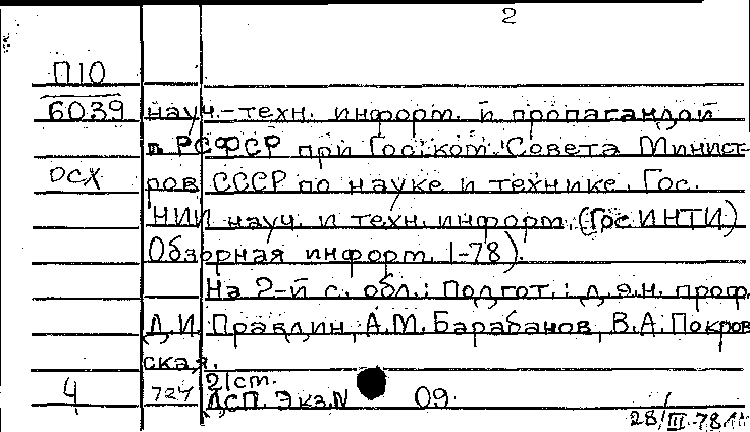 2
П10
6039 науч.-техн. информ. и пропагандой
в РСФСР при Гос. ком. Совета Минист-
осх ров СССР по науке и технике. Гос.
НИИ науч. и техн. информ. (ГосИНТИ)
Обзорная информ. 1-78).
На 2-й с. обл.: Подгот.: д.э.н. проф.
Д.И. Правдин, А.М. Барабанов, В.А. Покров
ская.
21 ст.
4 724 ДСП. Экз.N 09.
28/III-78